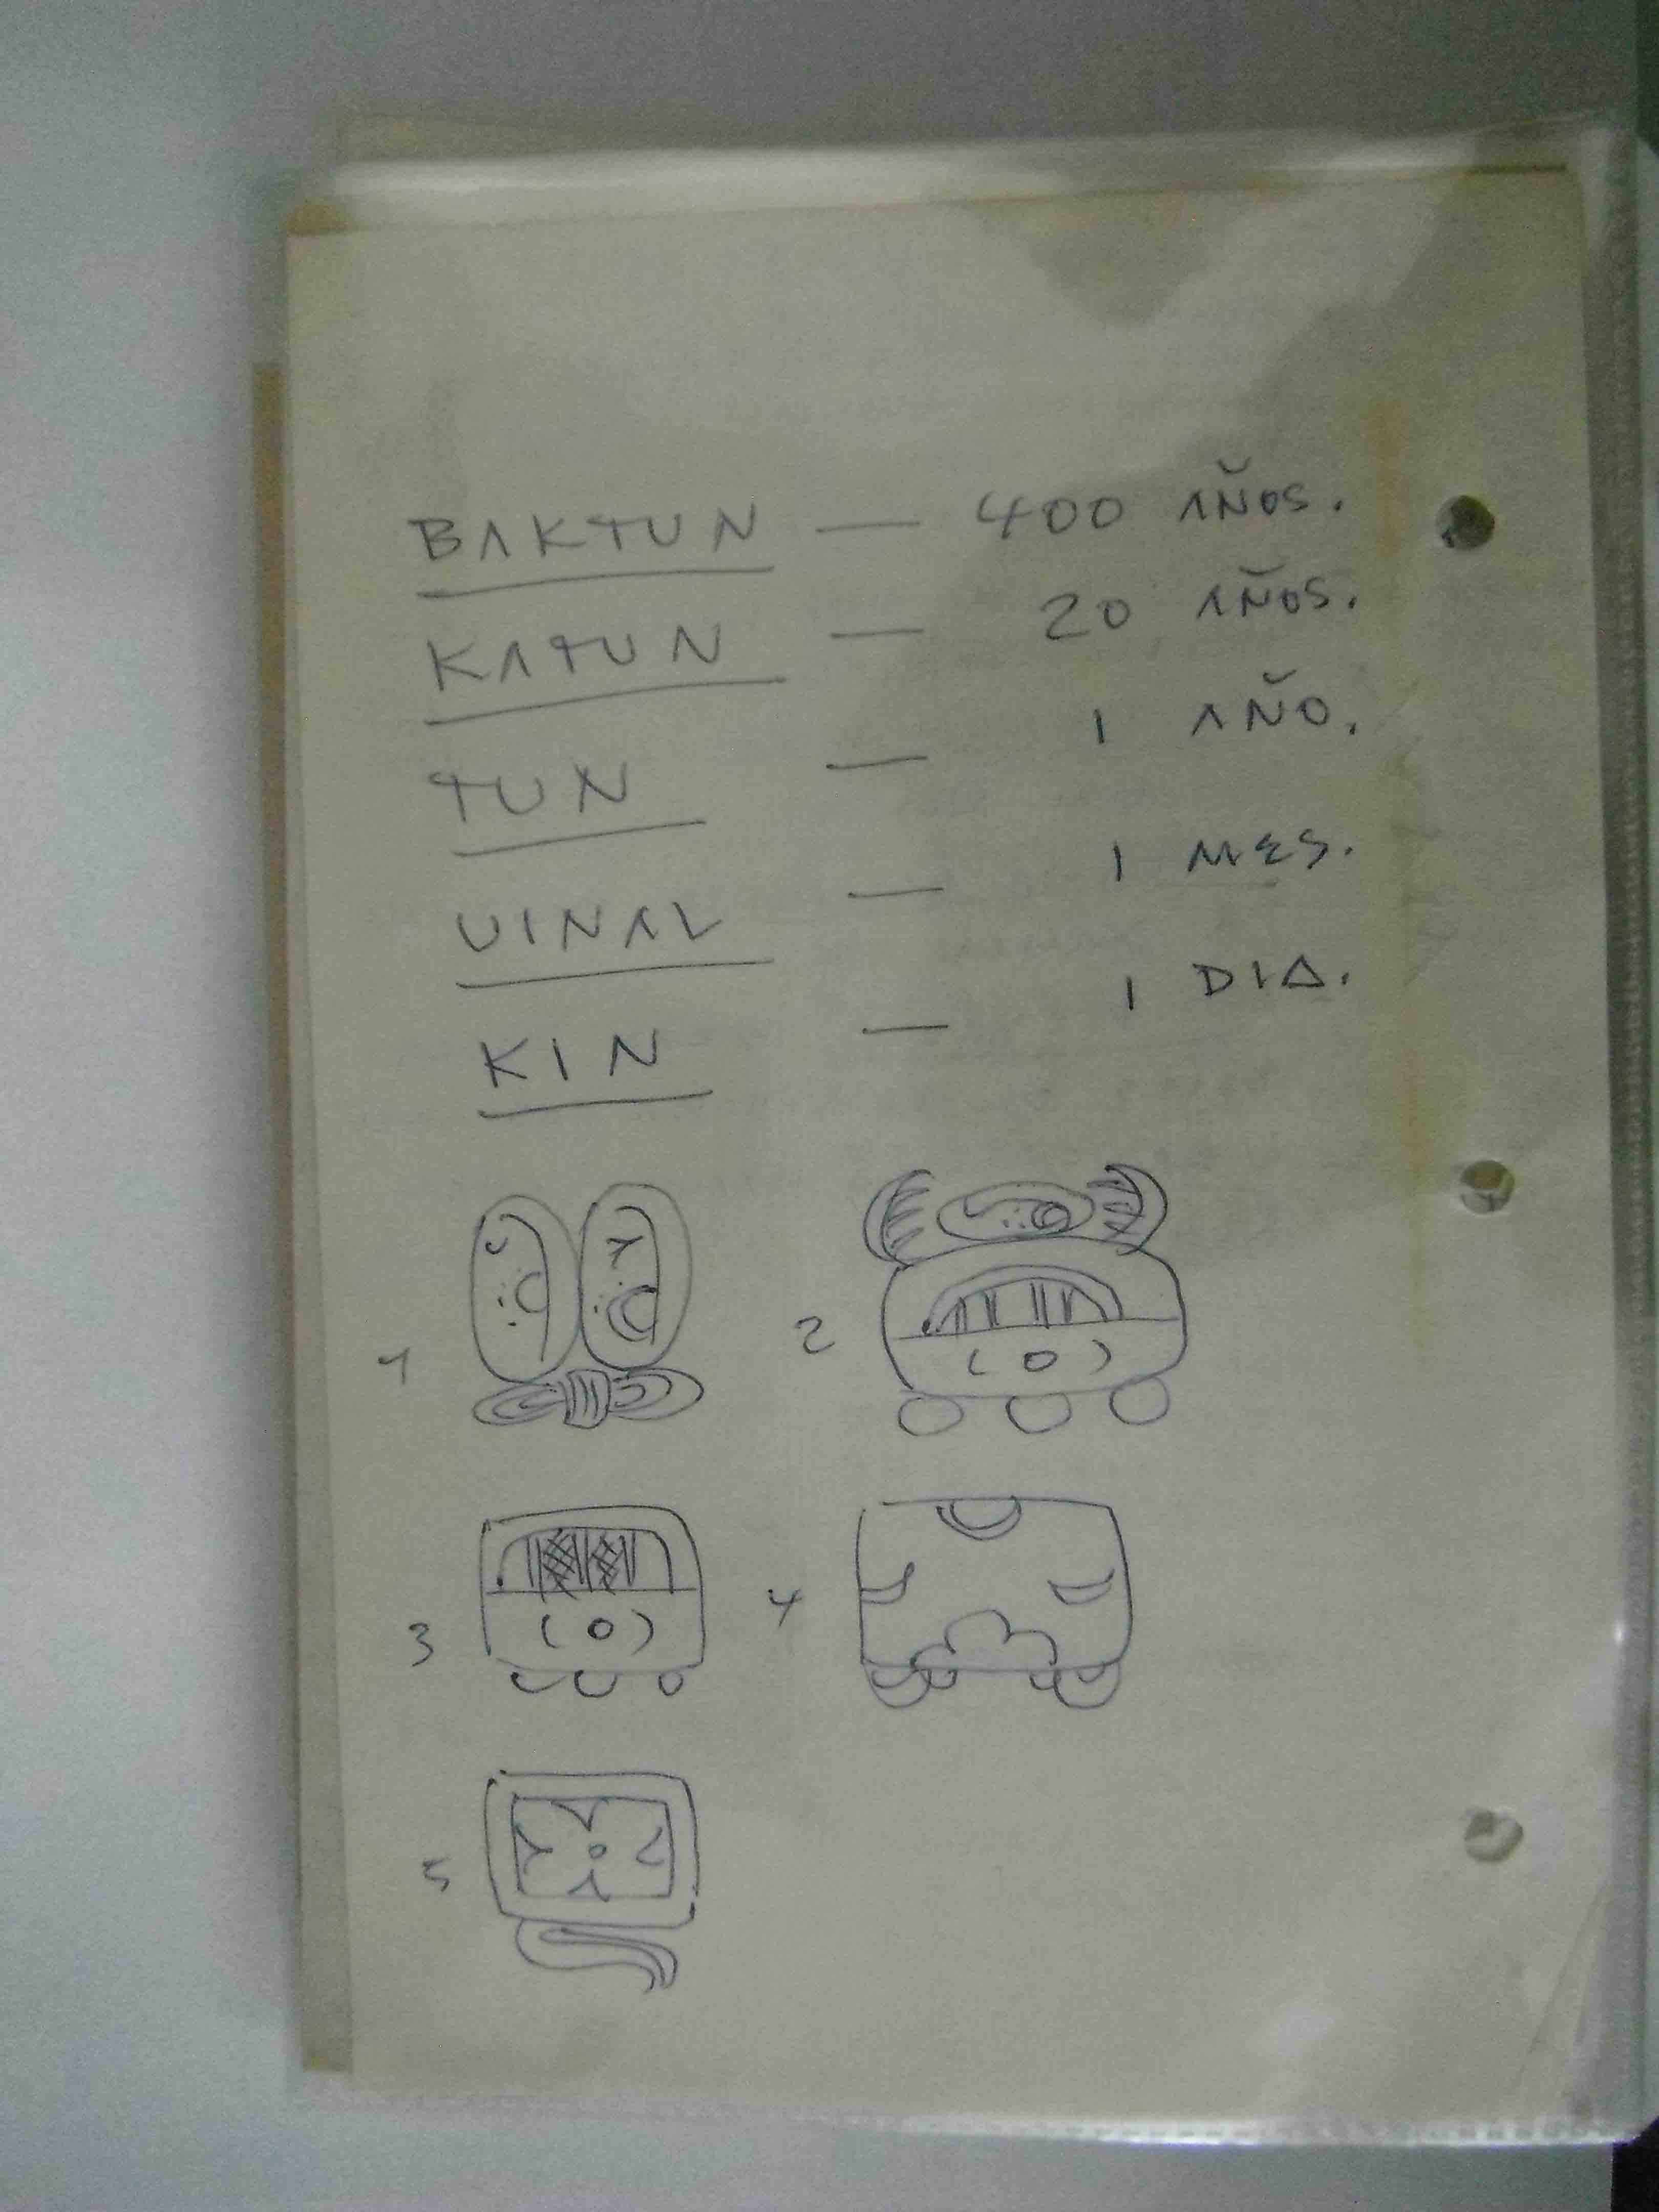 BAKTUN — 400 AÑOS.
KATUN — 20 AÑOS.
TUN — 1 AÑO.
UINAL — 1 MES.
KIN — 1 DIA.
1 2
3 4
5